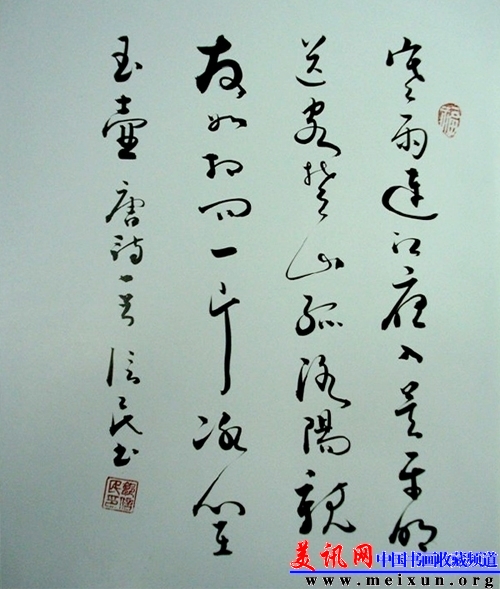 寒雨連江夜入吳平明
送客楚山孤洛陽親
友如相問一片冰心在
玉壺 唐詩一首 信民書
美讯网 中国书画收藏频道
www.meixun.org